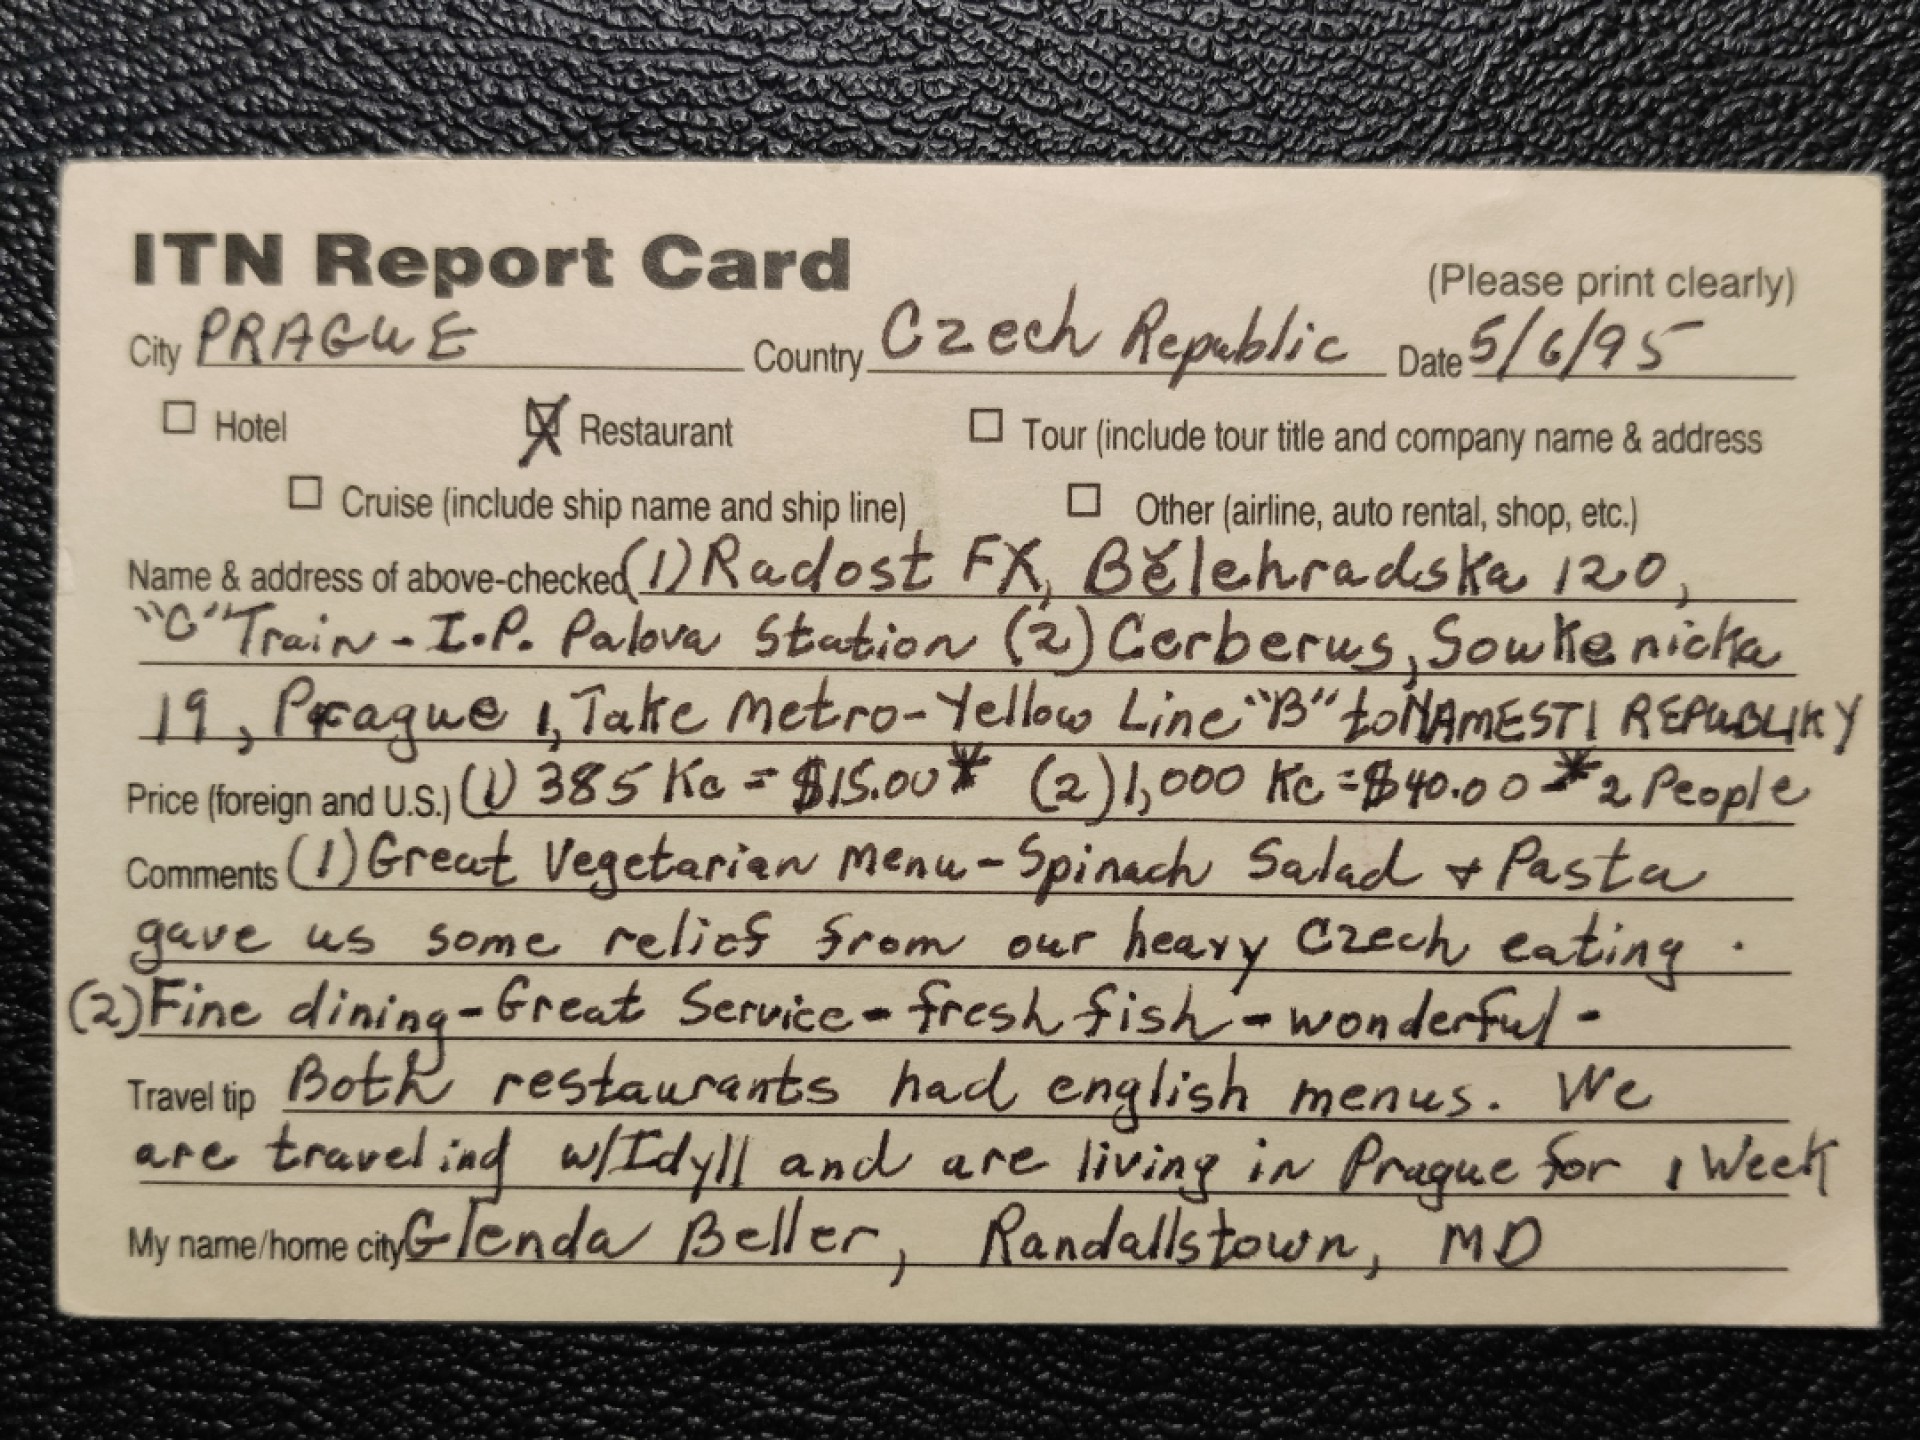 ITN Report Card
(Please print clearly)
City PRAGUE Country Czech Republic Date 5/6/95
Hotel Restaurant Tour (include tour title and company name & address
Cruise (include ship name and ship line) Other (airline, auto rental, shop, etc.)
Name & address of above-checked (1) Radost FX, Bělehradska 120,
"C" Train - I.P. Palova Station (2) Cerberus, Sowkenicka
19, Prague 1, Take Metro - Yellow Line "B" to NAMESTI REPUBLIKY
Price (foreign and U.S.) (1) 385 Kc = $15.00* (2) 1,000 Kc = $40.00 * 2 People
Comments (1) Great Vegetarian Menu - Spinach Salad + Pasta
gave us some relief from our heavy Czech eating.
(2) Fine dining - Great Service - fresh fish - wonderful -
Travel tip Both restaurants had english menus. We
are traveling w/Idyll and are living in Prague for 1 Week
My name/home city Glenda Beller, Randallstown, MD